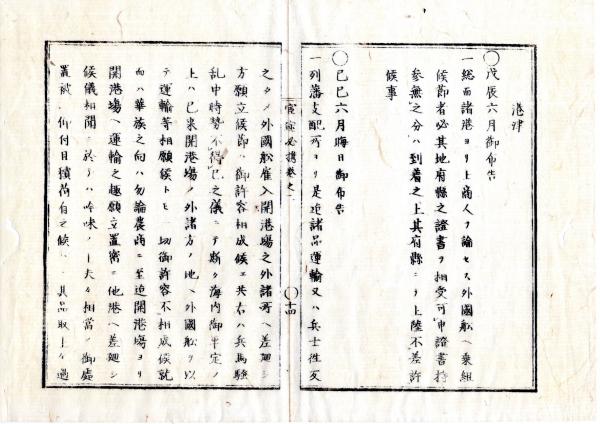 港津
〇戊辰六月御布告
一総而諸港ヨリ上商人ヲ論セス外國舩ヘ乗組
候節者必其地府縣之證書ヲ相受可申證書持
参無之分ハ到着之上其府縣ニヲ上陸不差許
候事
〇己巳六月晦日御布告
一列藩支配所ヨリ是迠諸品運輸又ハ兵士徃反
之タメ外國舩雇入開港塲之外諸所ヘ差廻シ
方願立候節ハ御許容相成候ヱ共右ハ兵馬騒
乱中時勢不得已之儀ニテ斯ク海内御平定ノ
上ハ已来開港塲ノ外諸方ノ地ヘ外國舩ヲ以
テ運輸等相願候トモ一切御許容不相成候就
而ハ華族之向ハ勿論農商ニ至迠開港塲ヨリ
開港塲ヘ運輸之趣願立置窃ニ他港ヘ差廻シ
候儀相聞ヱ於テハ吟味ノ上夫々相當ノ御處
置被 仰付且積荷有之候ハヽ其品取上ケ過
十四